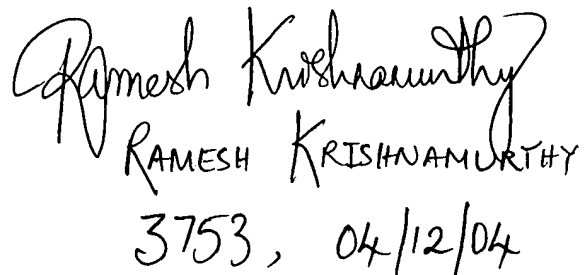 Ramesh Krishnamurthy
RAMESH KRISHNAMURTHY
3753, 04/12/04